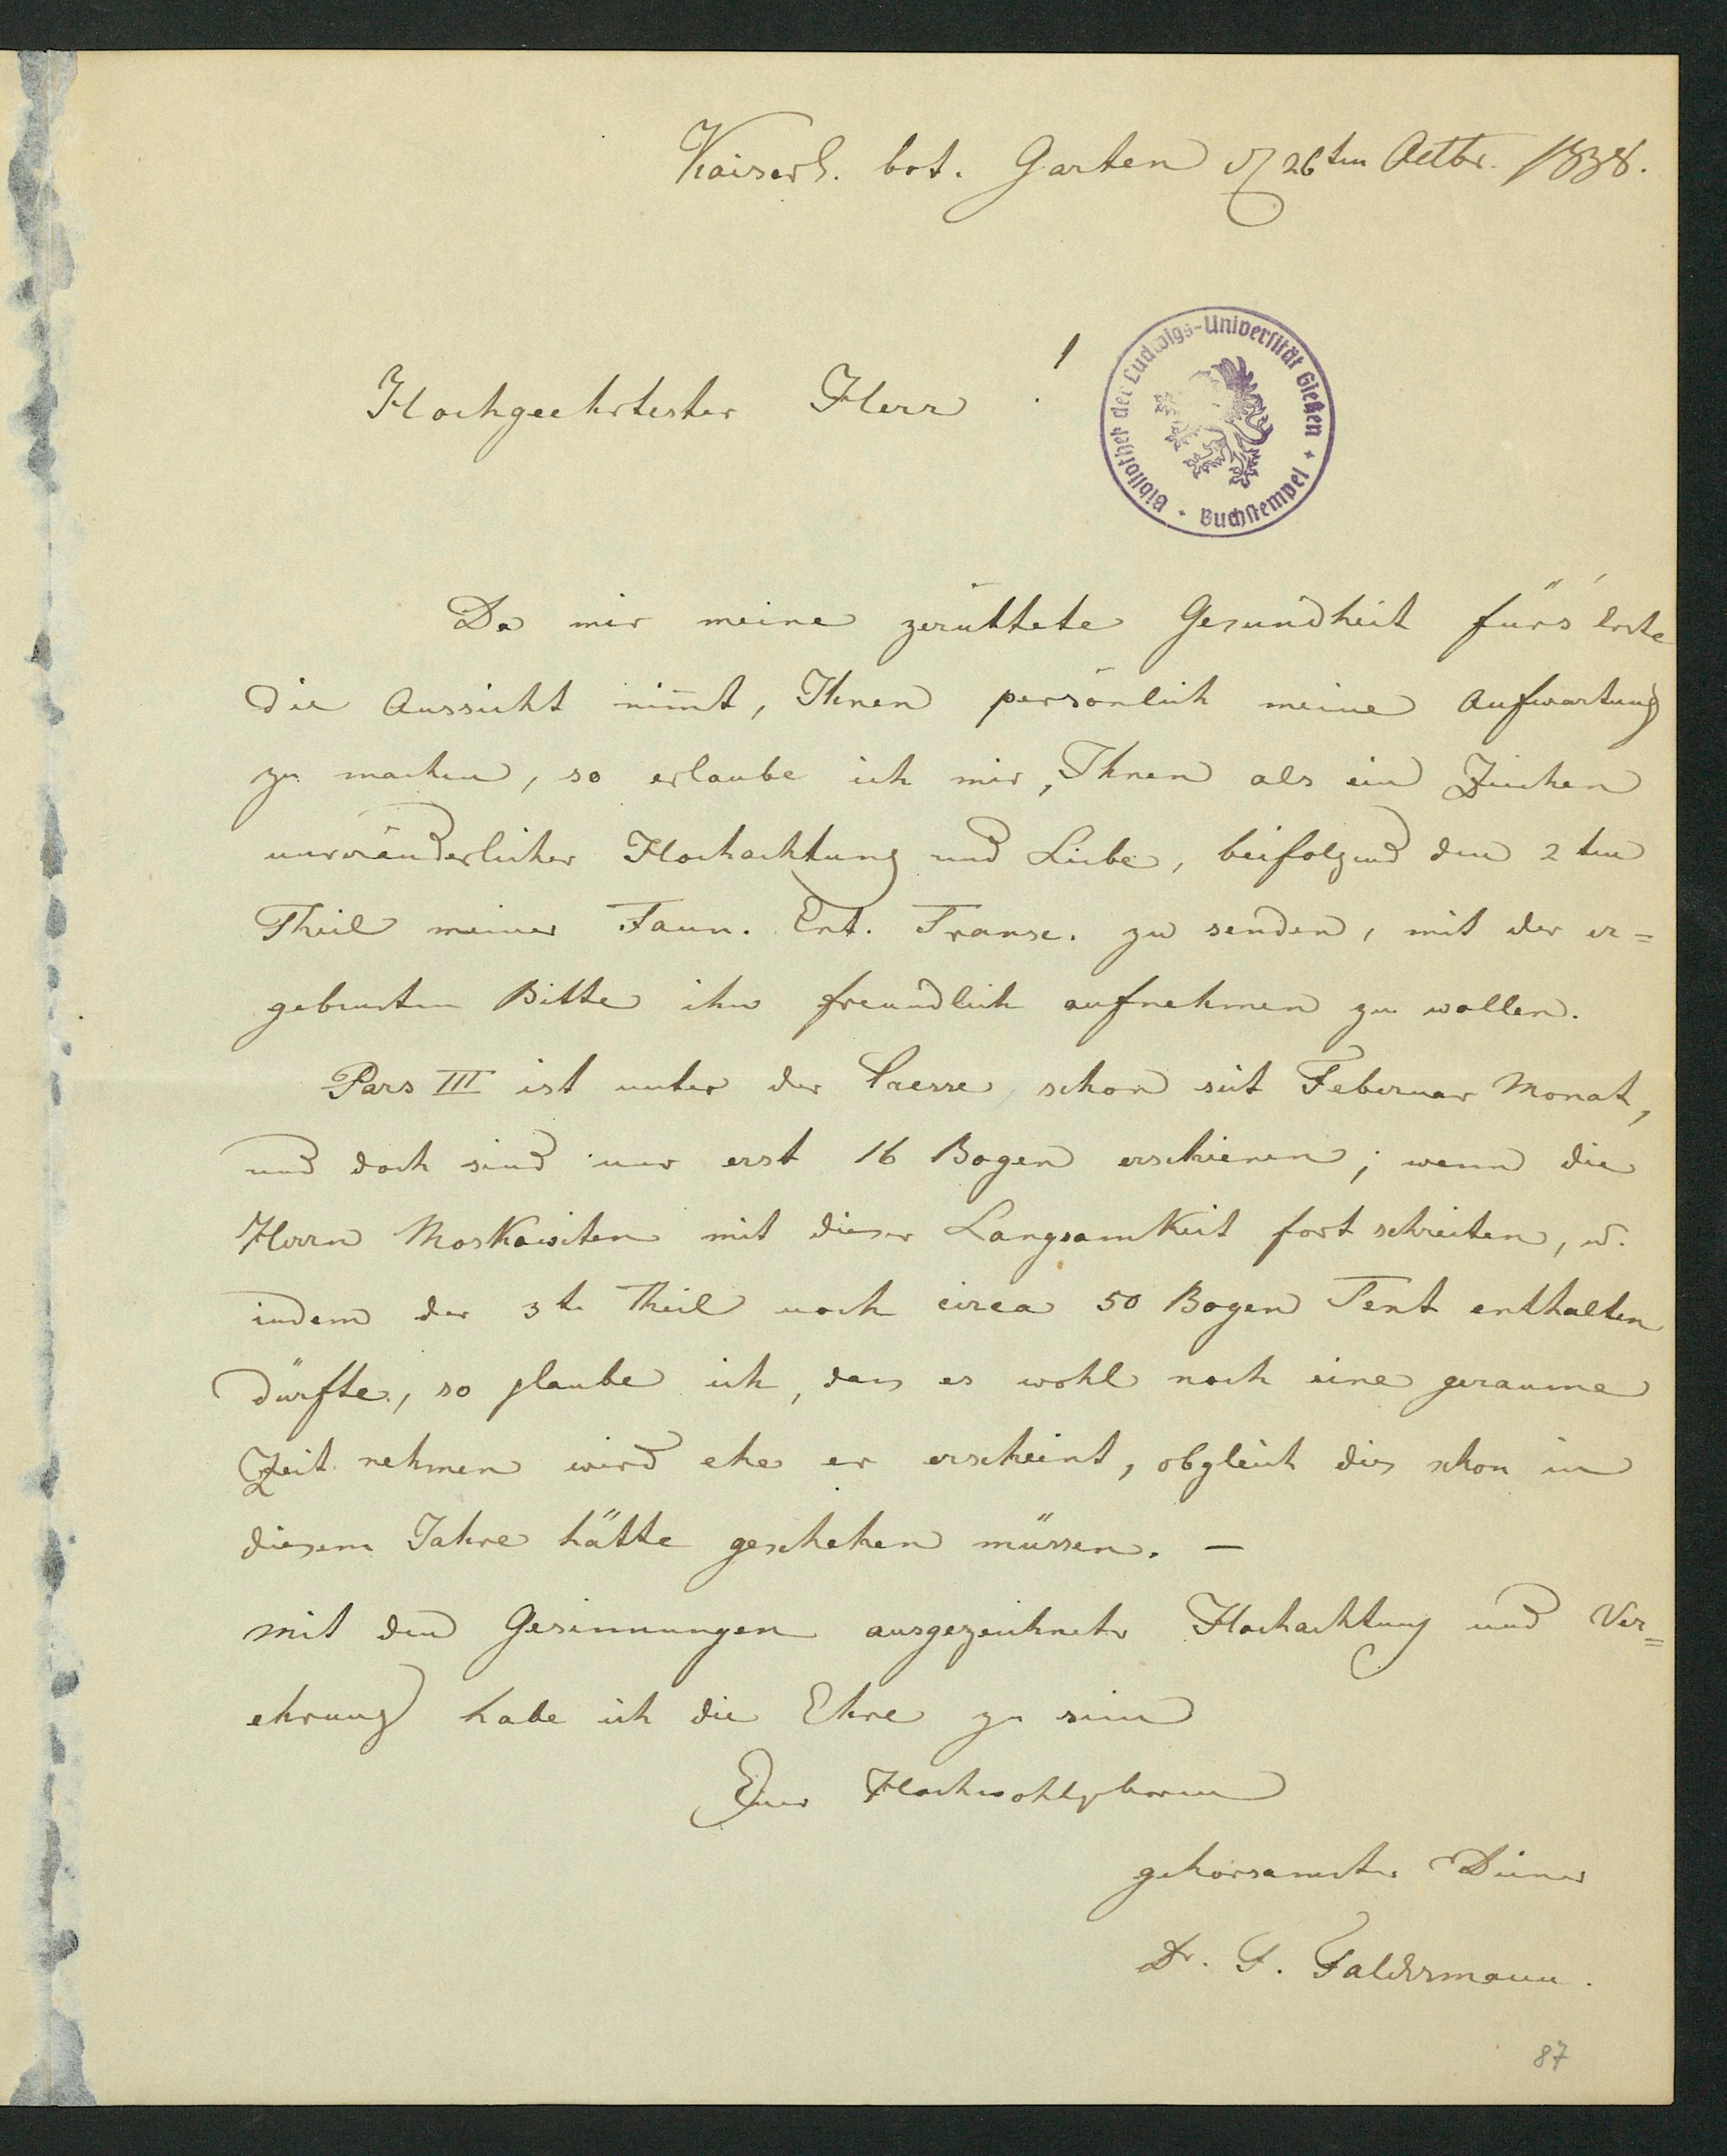 Kaiserl. bot. Garten d 26ten Octbr. 1838.
Hochgeehrtester Herr !
Bibliothek der Ludwigs-Universität Gießen + Buchstempel +
Da mir meine zerüttete Gesundheit fürs' Erste
die Aussicht nim̄t, Ihnen persönlich meine Aufwartung
zu machen, so erlaube ich mir, Ihnen als ein Zeichen
unveränderlicher Hochachtung und Liebe, beifolgend den 2ten
Theil meiner Faun. Ent. Transc. zu senden, mit der er=
gebensten Bitte ihn freundlich aufnehmen zu wollen.
Pars III ist unter der Presse, schon seit Februar Monat,
und doch sind nur erst 16 Bogen erschienen; wenn die
Herrn Moskowiten mit dieser Langsamkeit fort schreiten, u.
indem der 3te Theil noch circa 50 Bogen Text enthalten
dürfte, so glaube ich, dass es wohl noch eine geraume
Zeit nehmen wird ehe er erscheint, obgleich dies schon in
diesem Jahre hätte geschehen müssen. —
Mit den Gesinnungen ausgezeichneter Hochachtung und Ver=
ehrung habe ich die Ehre zu sein
Euer Hochwohlgeboren
gehorsamster Diener
Dr. F. Faldermann.
87